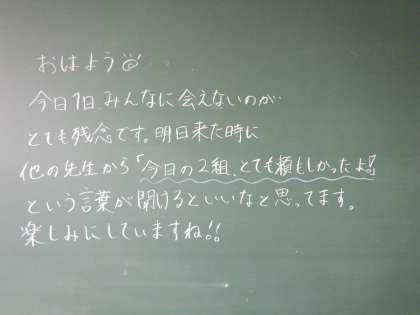 おはよう
今日1日、みんなに会えないのが…
とても残念です。明日来た時に
他の先生から「今日の2組、とても頼もしかったよ!」
という言葉が聞けるといいなと思ってます。
楽しみにしていますね!!